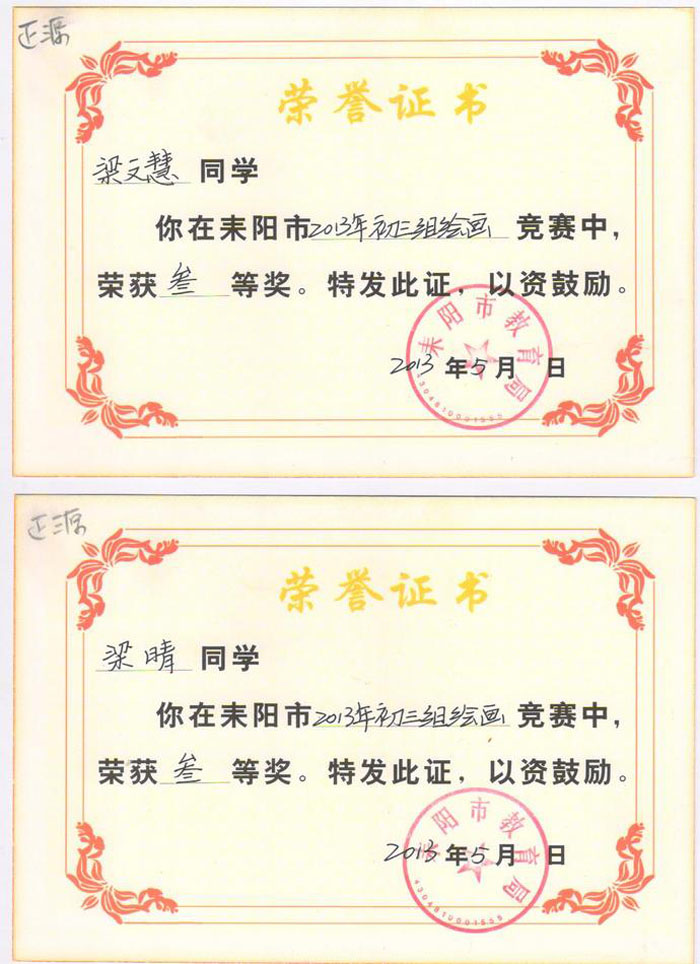 正源
荣誉证书
梁文慧 同学
你在耒阳市2013年初三组绘画 竞赛中，
荣获 叁 等奖。特发此证，以资鼓励。
耒阳市教育局
2013 年 5 月 日
4304810001555
正源
荣誉证书
梁晴 同学
你在耒阳市2013年初三组绘画 竞赛中，
荣获 叁 等奖。特发此证，以资鼓励。
耒阳市教育局
2013 年 5 月 日
4304810001555